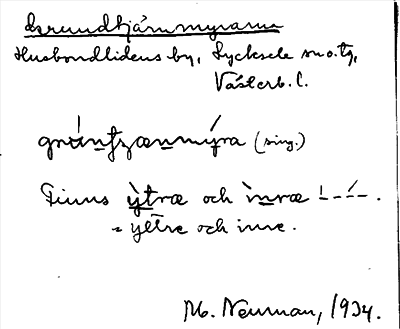 Grundtjärnmyrarna
Husbondlidens by, Lycksele sn o. tg,
Västerb. l.
myra (sing.)
Finns ỳtræ och ìnræ
= yttre och inre.
M. Neuman, 1934.